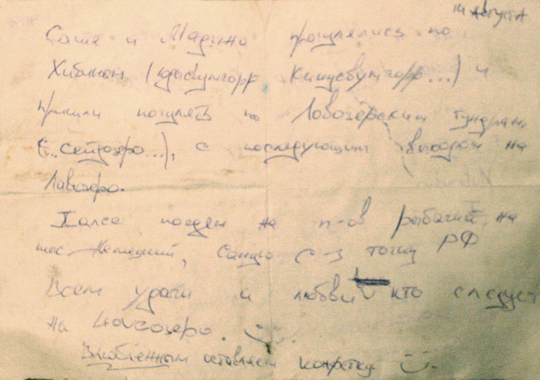 14 августа
Саша и Марина прогулялись по
Хибинам (юдычвумчорр кицкувумчорр...) и
пришли погулять по Ловозёрским тундрам
(...сейдозеро...), с последующим выходом на
Ловозеро.
Далее поедем на п-ов рыбачий, на
мыс Немецкий, самую с-з точку РФ
Всем удачи и любви кто следует
на
Влюблённым оставляем конфетку :)